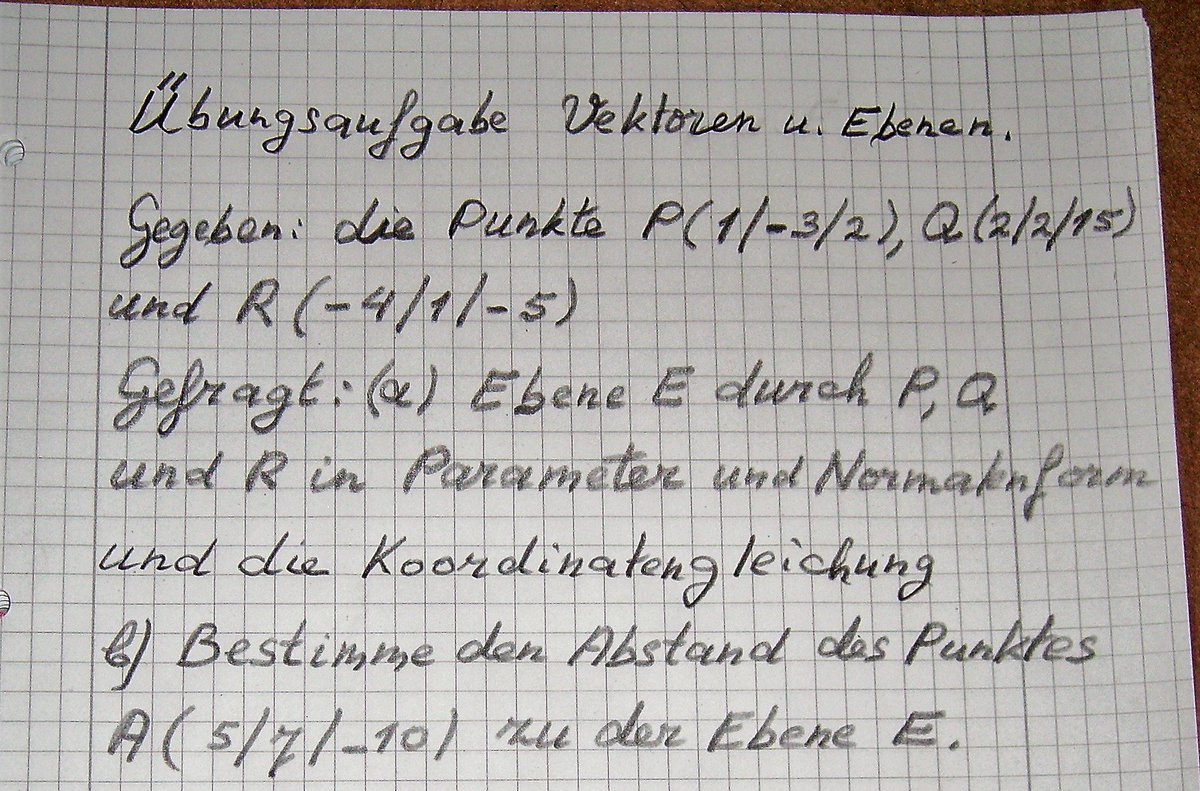 Übungsaufgabe Vektoren u. Ebenen.
Gegeben: die Punkte P(1/-3/2), Q(2/2/15)
und R(-4/1/-5)
Gefragt: (a) Ebene E durch P, Q
und R in Parameter und Normalenform
und die Koordinatengleichung
b) Bestimme den Abstand des Punktes
A(5/7/-10) zu der Ebene E.